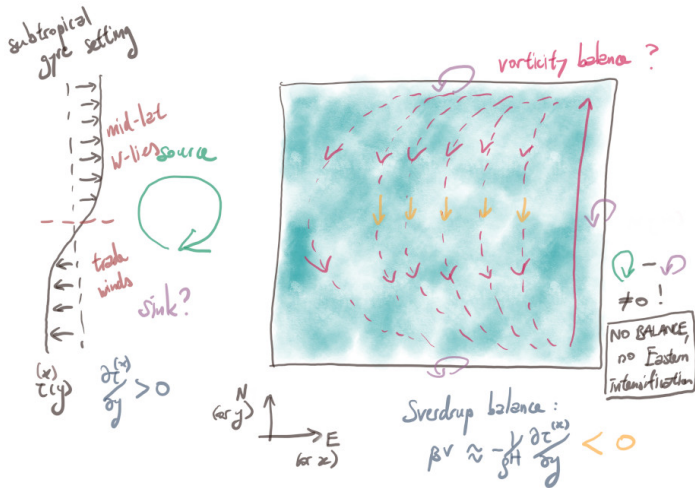 subtropical
gyre setting
mid-lat
W-lies
source
trade
winds
sink?
τ^(x)(y)
∂τ^(x)/∂y > 0
vorticity balance ?
≠0 !
NO BALANCE,
no Eastern
intensification
N
(or y)
E
(or x)
Sverdrup balance :
βv ≈ - 1/ρH ∂τ^(x)/∂y < 0